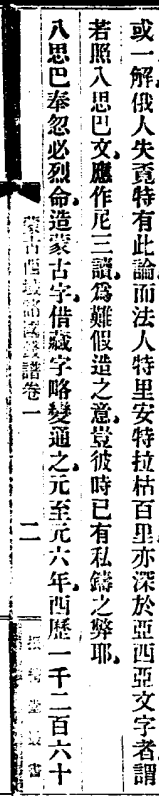 或一解俄人失賚特有此論而法人特里安特拉枯百里亦深於亞西亞文字者謂
若照八思巴文應作㞑三讀爲難假造之意豈彼時已有私鑄之弊耶
八思巴奉忽必烈命造蒙古字借藏字略變通之元至元六年西歷一千二百六十
蒙古西域諸國錢譜卷一
二